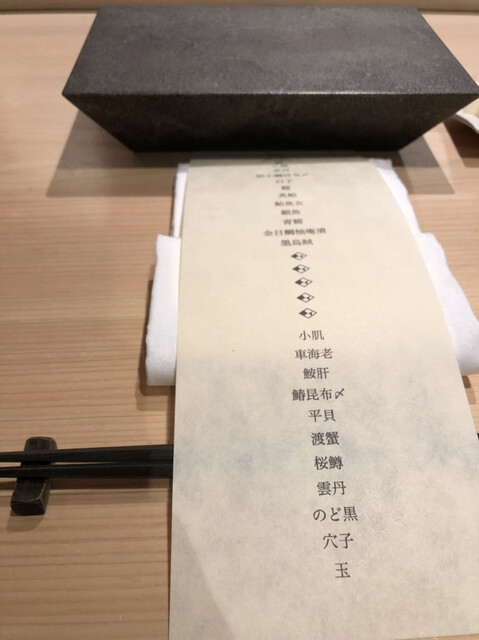 白子
煮鮑
鮎魚女
銀魚
青柳
金目鯛柚庵漬
墨烏賊
小肌
車海老
鮟肝
鰆昆布〆
平貝
渡蟹
桜鱒
雲丹
のど黒
穴子
玉